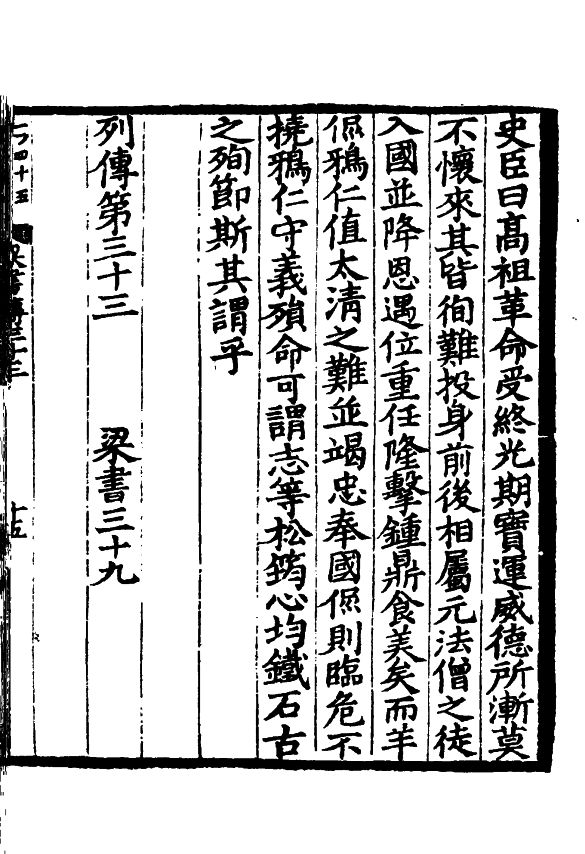 史臣曰髙祖革命受終光期寶運威德所漸莫
不懷來其皆徇難投身前後相屬元法僧之徒
入國並降恩遇位重任隆擊鍾鼎食美矣而羊
侃鴉仁值太清之難並竭忠奉國侃則臨危不
撓鴉仁守義殞命可謂志等松筠心均鐵石古
之殉節斯其謂乎
列傳第三十三　梁書三十九
十五